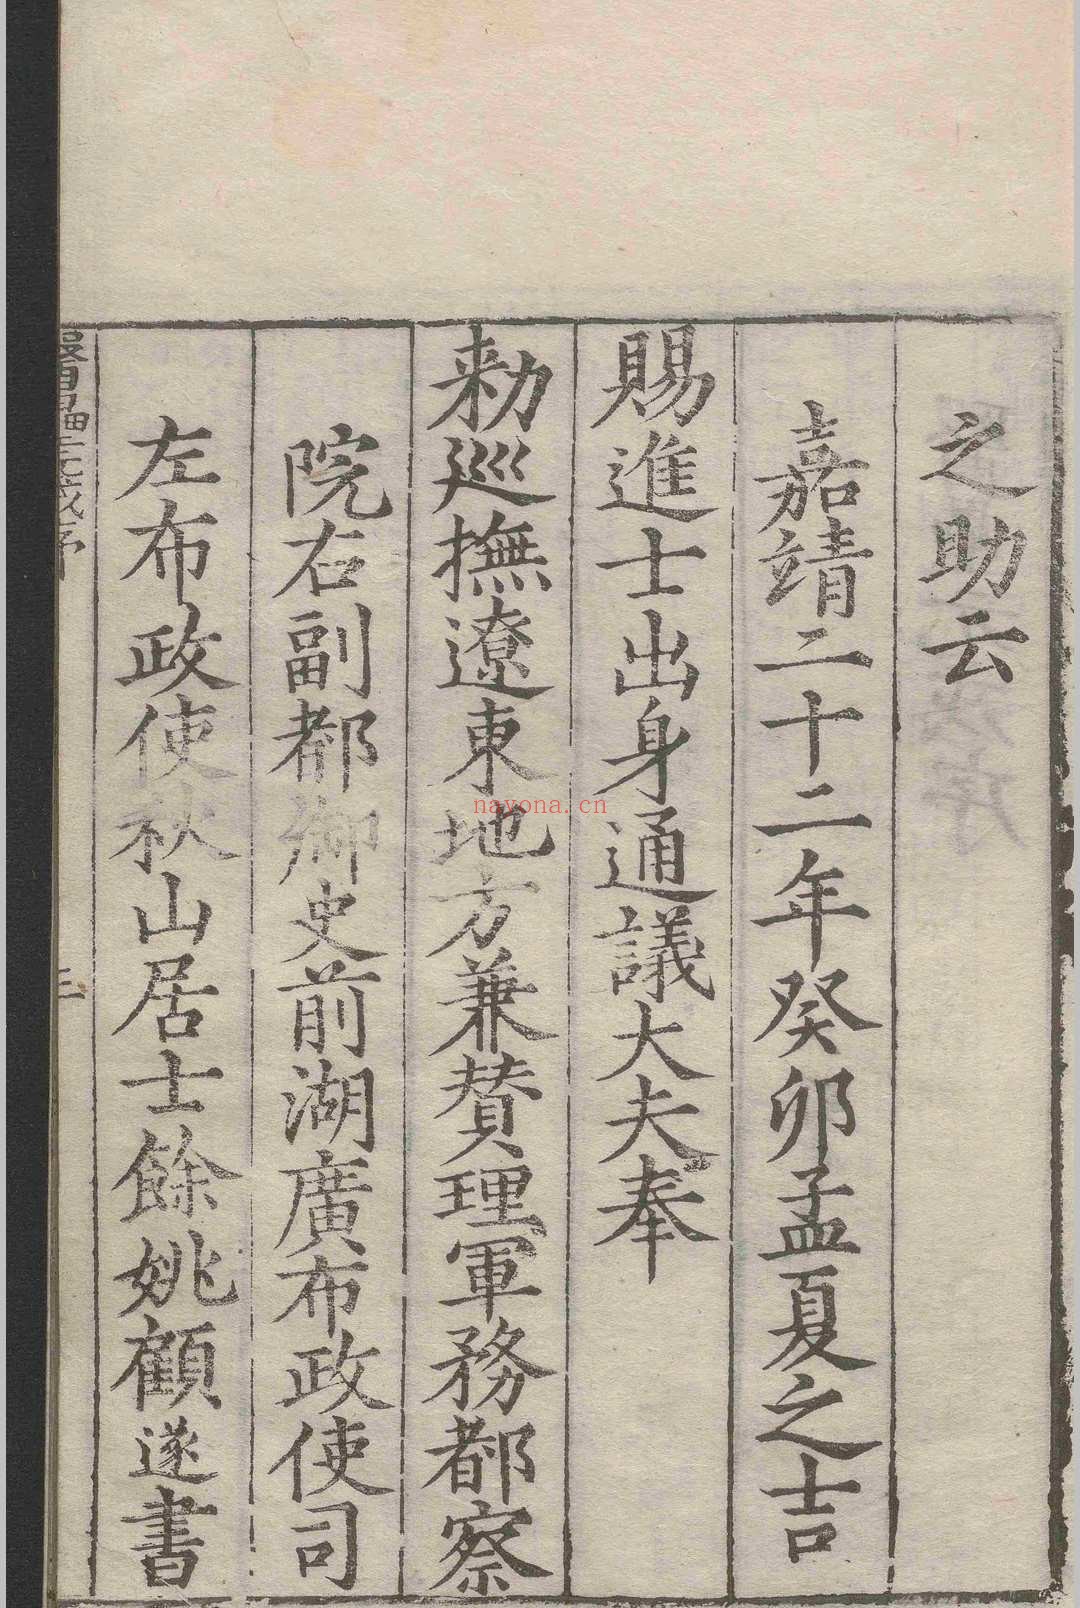 之助云
嘉靖二十二年癸卯孟夏之吉
賜進士出身通議大夫奉
勑巡撫遼東地方兼賛理軍務都察
院右副都御史前湖廣布政使司
左布政使秋山居士餘姚顧遂書
序
三
nayona.cn